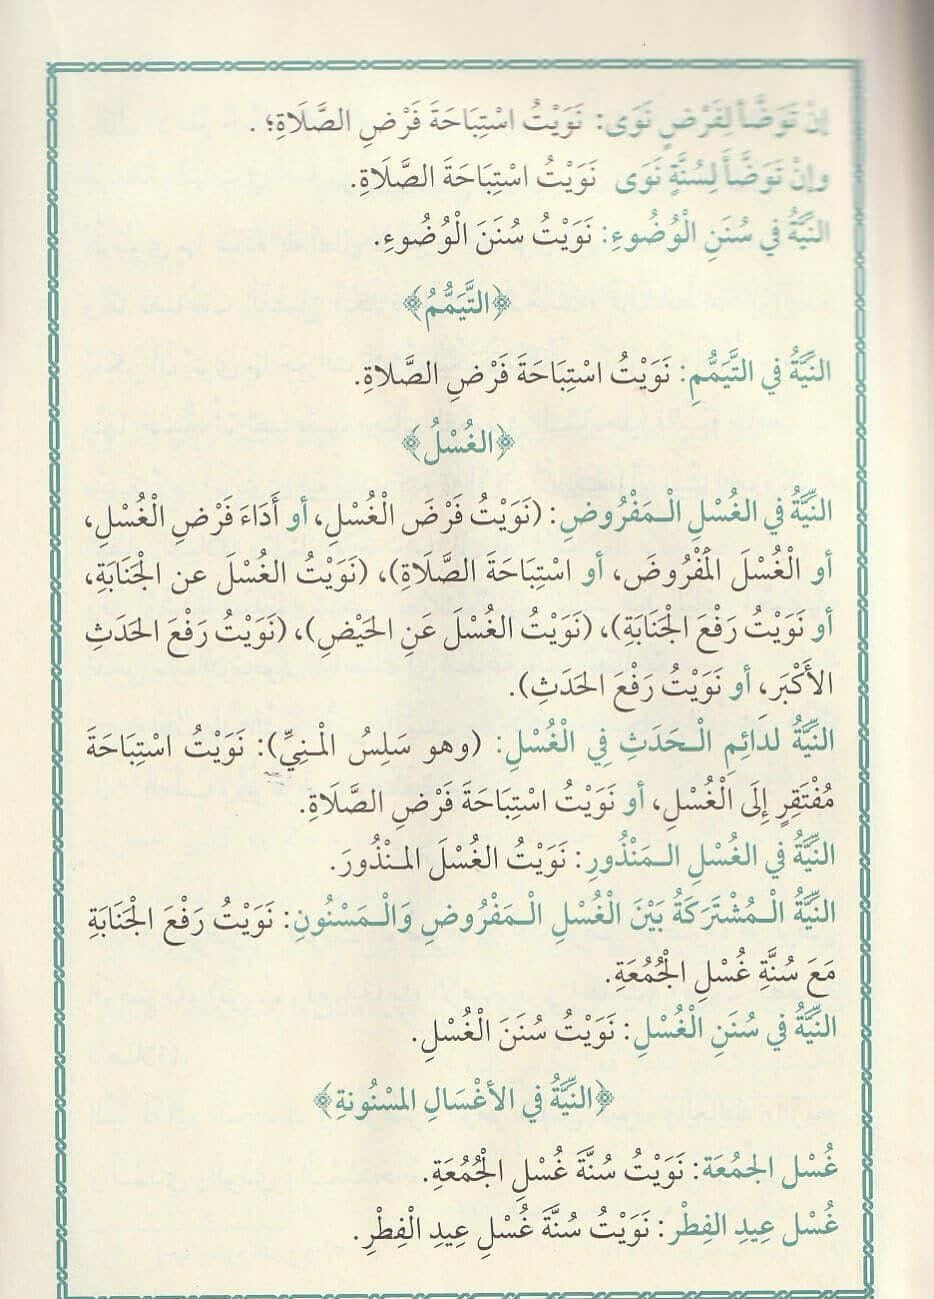 إنْ تَوَضَّأَ لِفَرْضٍ نَوَى: نَوَيْتُ اسْتِبَاحَةَ فَرْضِ الصَّلَاةِ؛ .
وإنْ تَوَضَّأَ لِسُنَّةٍ نَوَى نَوَيْتُ اسْتِبَاحَةَ الصَّلَاةِ.
النِّيَّةُ في سُنَنِ الْوُضُوءِ: نَوَيْتُ سُنَنَ الْوُضُوءِ.
﴿التَّيَمُّمُ﴾
النِّيَّةُ في التَّيَمُّمِ: نَوَيْتُ اسْتِبَاحَةَ فَرْضِ الصَّلاةِ.
﴿الغُسْلُ﴾
النِّيَّةُ في الغُسْلِ الْـمَفْرُوضِ: (نَوَيْتُ فَرْضَ الْغُسْلِ، أو أَدَاءَ فَرْضِ الْغُسْلِ،
أو الْغُسْلَ المَفْرُوضَ، أو اسْتِبَاحَةَ الصَّلَاةِ)، (نَوَيْتُ الغُسْلَ عن الجَنَابَةِ،
أو نَوَيْتُ رَفْعَ الْجَنَابَةِ)، (نَوَيْتُ الغُسْلَ عَنِ الحَيْضِ)، (نَوَيْتُ رَفْعَ الحَدَثِ
الأَكْبَرِ، أو نَوَيْتُ رَفْعَ الحَدَثِ).
النِّيَّةُ لدَائِمِ الْـحَدَثِ فِي الْغُسْلِ: (وهو سَلِسُ الْمَنِيِّ): نَوَيْتُ اسْتِبَاحَةَ
مُفْتَقِرٍ إلَى الْغُسْلِ، أو نَوَيْتُ اسْتِبَاحَةَ فَرْضِ الصَّلَاةِ.
النِّيَّةُ في الغُسْلِ الـمَنْذُورِ: نَوَيْتُ الغُسْلَ المـنْذُورَ.
النِّيَّةُ الْـمُشْتَرَكَةُ بَيْنَ الْغُسْلِ الْـمَفْرُوضِ وَالْـمَسْنُونِ: نَوَيْتُ رَفْعَ الْجَنَابَةِ
مَعَ سُنَّةِ غُسْلِ الْجُمُعَةِ.
النِّيَّةُ في سُنَنِ الْغُسْلِ: نَوَيْتُ سُنَنَ الْغُسْلِ.
﴿النِّيَّةُ في الأغْسَالِ المسْنُونةِ﴾
غُسْل الجمُعَة: نَوَيْتُ سُنَّةَ غُسْلِ الْجُمُعَةِ.
غُسْل عِيدِ الفِطْر: نَوَيْتُ سُنَّةَ غُسْلِ عِيدِ الْفِطْرِ.